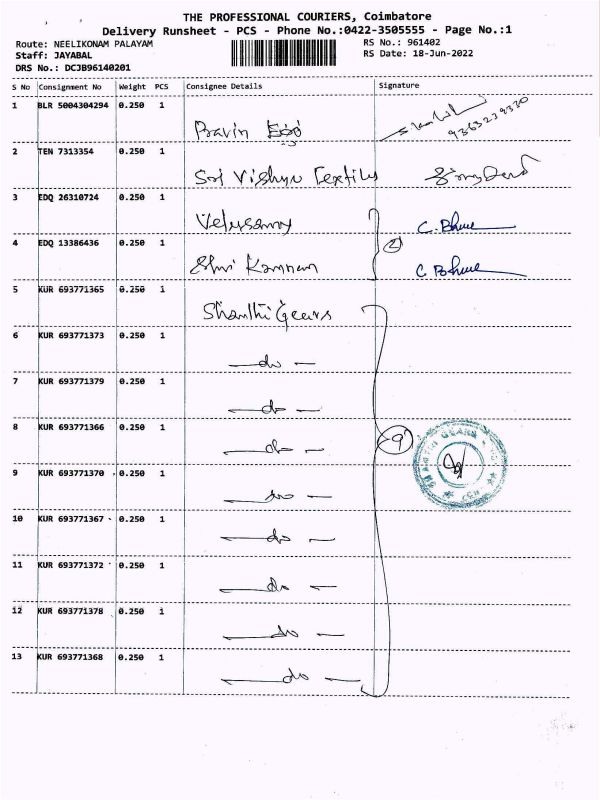 THE PROFESSIONAL COURIERS, Coimbatore
Delivery Runsheet - PCS - Phone No.:0422-3505555 - Page No.:1
Route: NEELIKONAM PALAYAM
Staff: JAYABAL
DRS No.: DCJB96140201
RS No.: 961402
RS Date: 18-Jun-2022
S No Consignment No Weight PCS Consignee Details Signature
1 BLR 5004304294 0.250 1
Pravin
9363239330
2 TEN 7313354 0.250 1
Sri Vishnu Textiles
3 EDQ 26310724 0.250 1
Velusamy
4 EDQ 13386436 0.250 1
Shri Kannan
2
5 KUR 693771365 0.250 1
Shanthi Gears
6 KUR 693771373 0.250 1
— do —
7 KUR 693771379 0.250 1
— do —
8 KUR 693771366 0.250 1
— do —
9
9 KUR 693771370 0.250 1
— do —
10 KUR 693771367 0.250 1
— do —
11 KUR 693771372 0.250 1
— do —
12 KUR 693771378 0.250 1
— do —
13 KUR 693771368 0.250 1
— do —